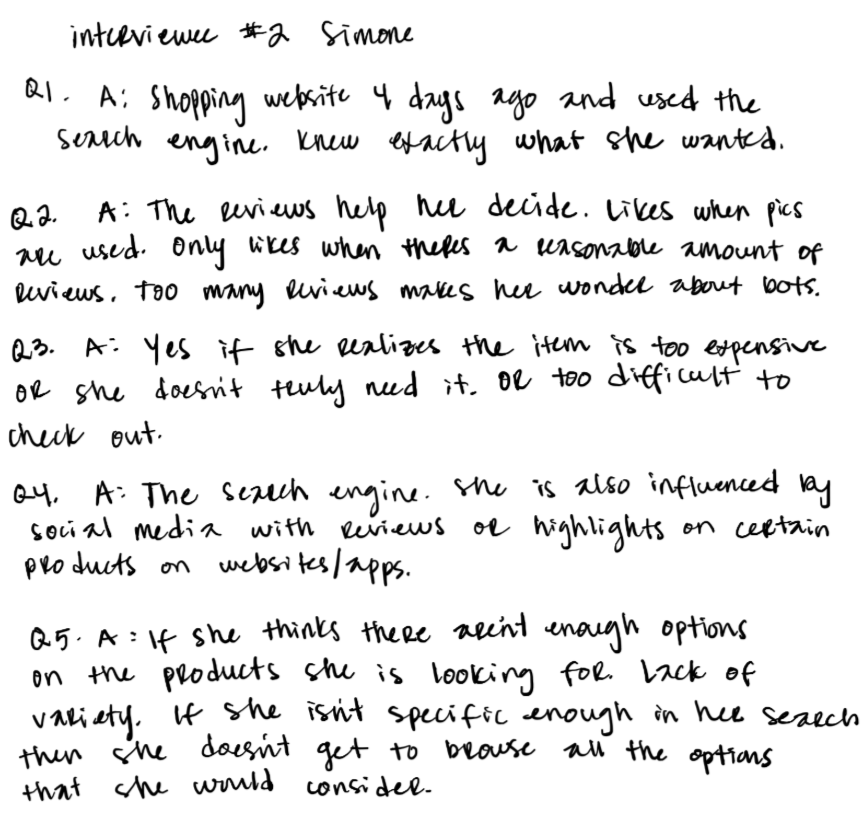 interviewee #2 Simone
Q1. A: Shopping website 4 days ago and used the
search engine. Knew exactly what she wanted.
Q2. A: The reviews help her decide. Likes when pics
are used. Only likes when theres a reasonable amount of
reviews. Too many reviews makes her wonder about bots.
Q3. A: Yes if she realizes the item is too expensive
OR she doesn't truly need it. OR too difficult to
check out.
Q4. A: The search engine. She is also influenced by
social media with reviews or highlights on certain
products on websites/apps.
Q5. A: If she thinks there aren't enough options
on the products she is looking for. Lack of
variety. If she isn't specific enough in her search
then she doesn't get to browse all the options
that she would consider.